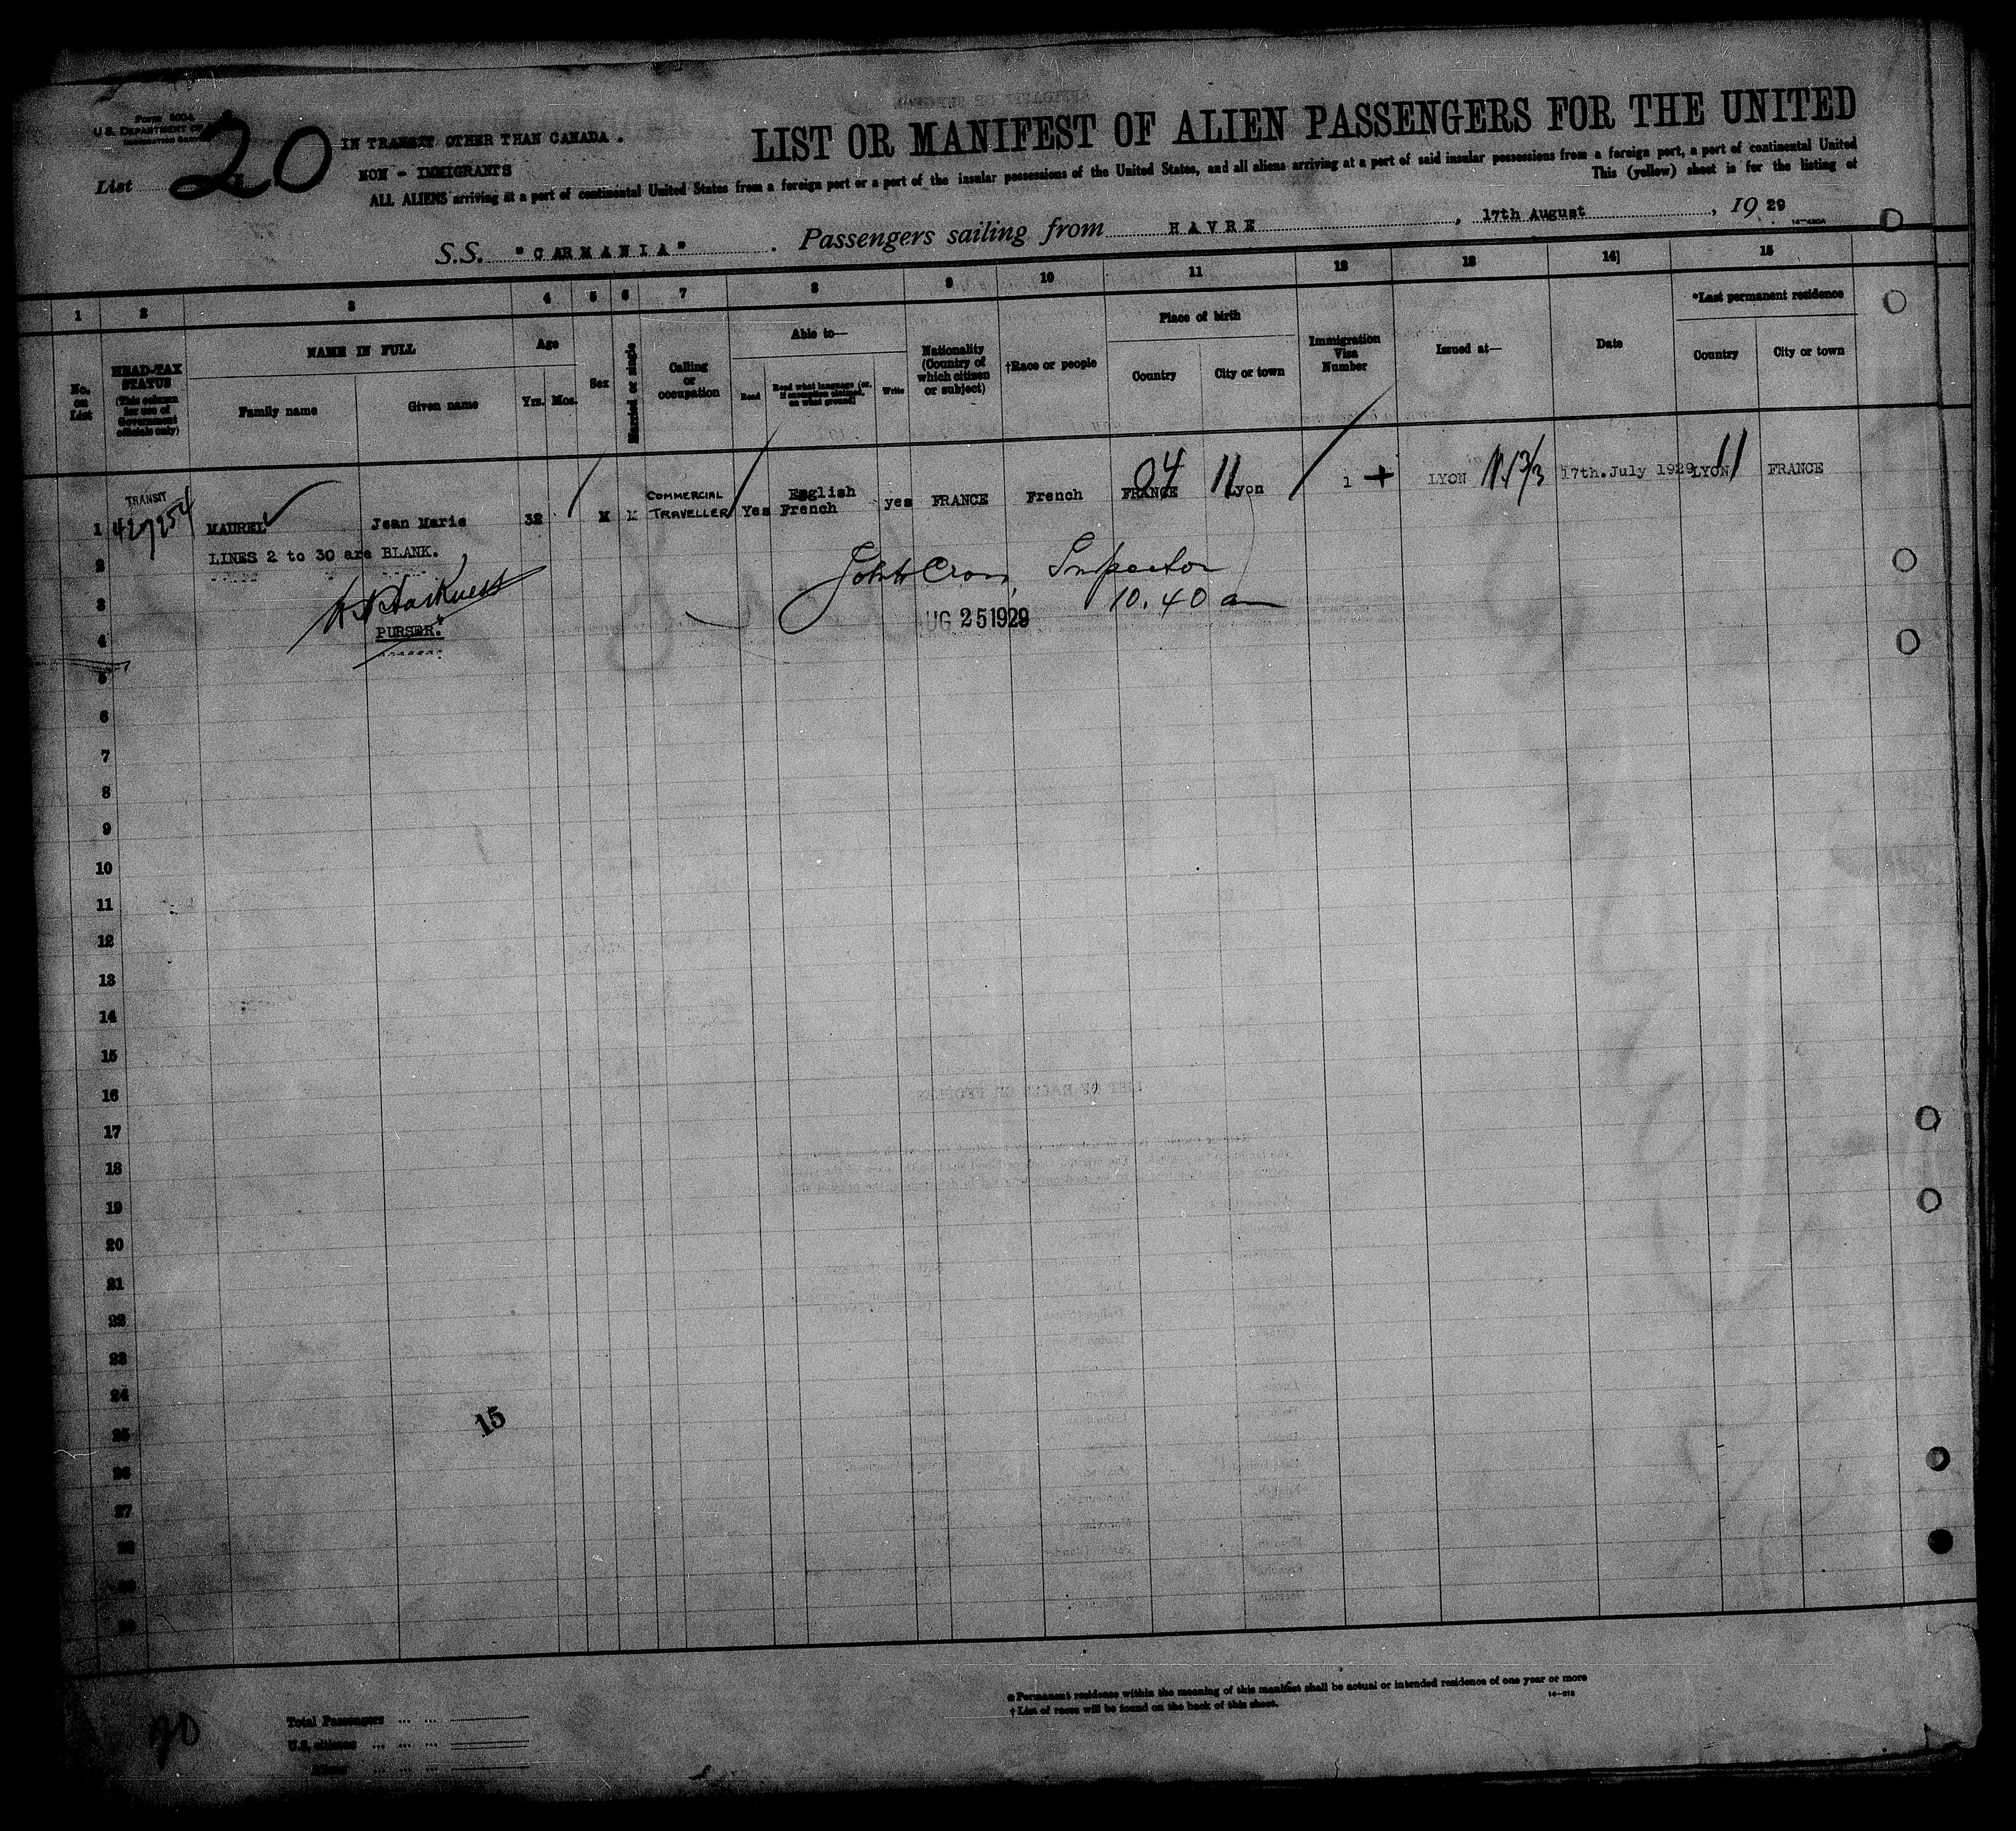 Form 500A
U. S. DEPARTMENT OF
List 20
IN TRANSIT OTHER THAN CANADA .
NON - IMMIGRANTS
LIST OR MANIFEST OF ALIEN PASSENGERS FOR THE UNITED
ALL ALIENS arriving at a port of continental United States from a foreign port or a port of the insular possessions of the United States, and all aliens arriving at a port of said insular possessions from a foreign port, a port of continental United
This (yellow) sheet is for the listing of
S.S. "CARMANIA" . Passengers sailing from HAVRE , 17th August , 19 29
1 2 3 4 5 6 7 8 9 10 11 12 13 14] 15
No. on List
HEAD-TAX STATUS (This column for use of Government officials only)
NAME IN FULL
Family name Given name
Age
Yrs. Mos.
Sex
Married or single
Calling or occupation
Able to—
Read Read what language (or, if exemption claimed, on what ground) Write
Nationality (Country of which citizen or subject)
†Race or people
Place of birth
Country City or town
Immigration Visa Number
Issued at—
Date
*Last permanent residence
Country City or town
TRANSIT
1 427254 MAUREL Jean Marie 32 M M COMMERCIAL TRAVELLER Yes English French yes FRANCE French FRANCE 04 Lyon 11 1 + LYON 17th.July 1929 LYON 11 FRANCE
2 LINES 2 to 30 are BLANK.
3
PURSER.
Inspector
10.40 am
UG 25 1929
4
5
6
7
8
9
10
11
12
13
14
15
16
17
18
19
20
21
22
23
24
15
25
26
27
28
29
30
*Permanent residence within the meaning of this manifest shall be actual or intended residence of one year or more
† List of races will be found on the back of this sheet.
Total Passengers ... ...
U.S. citizens ... ... ...
Aliens ... ... ...